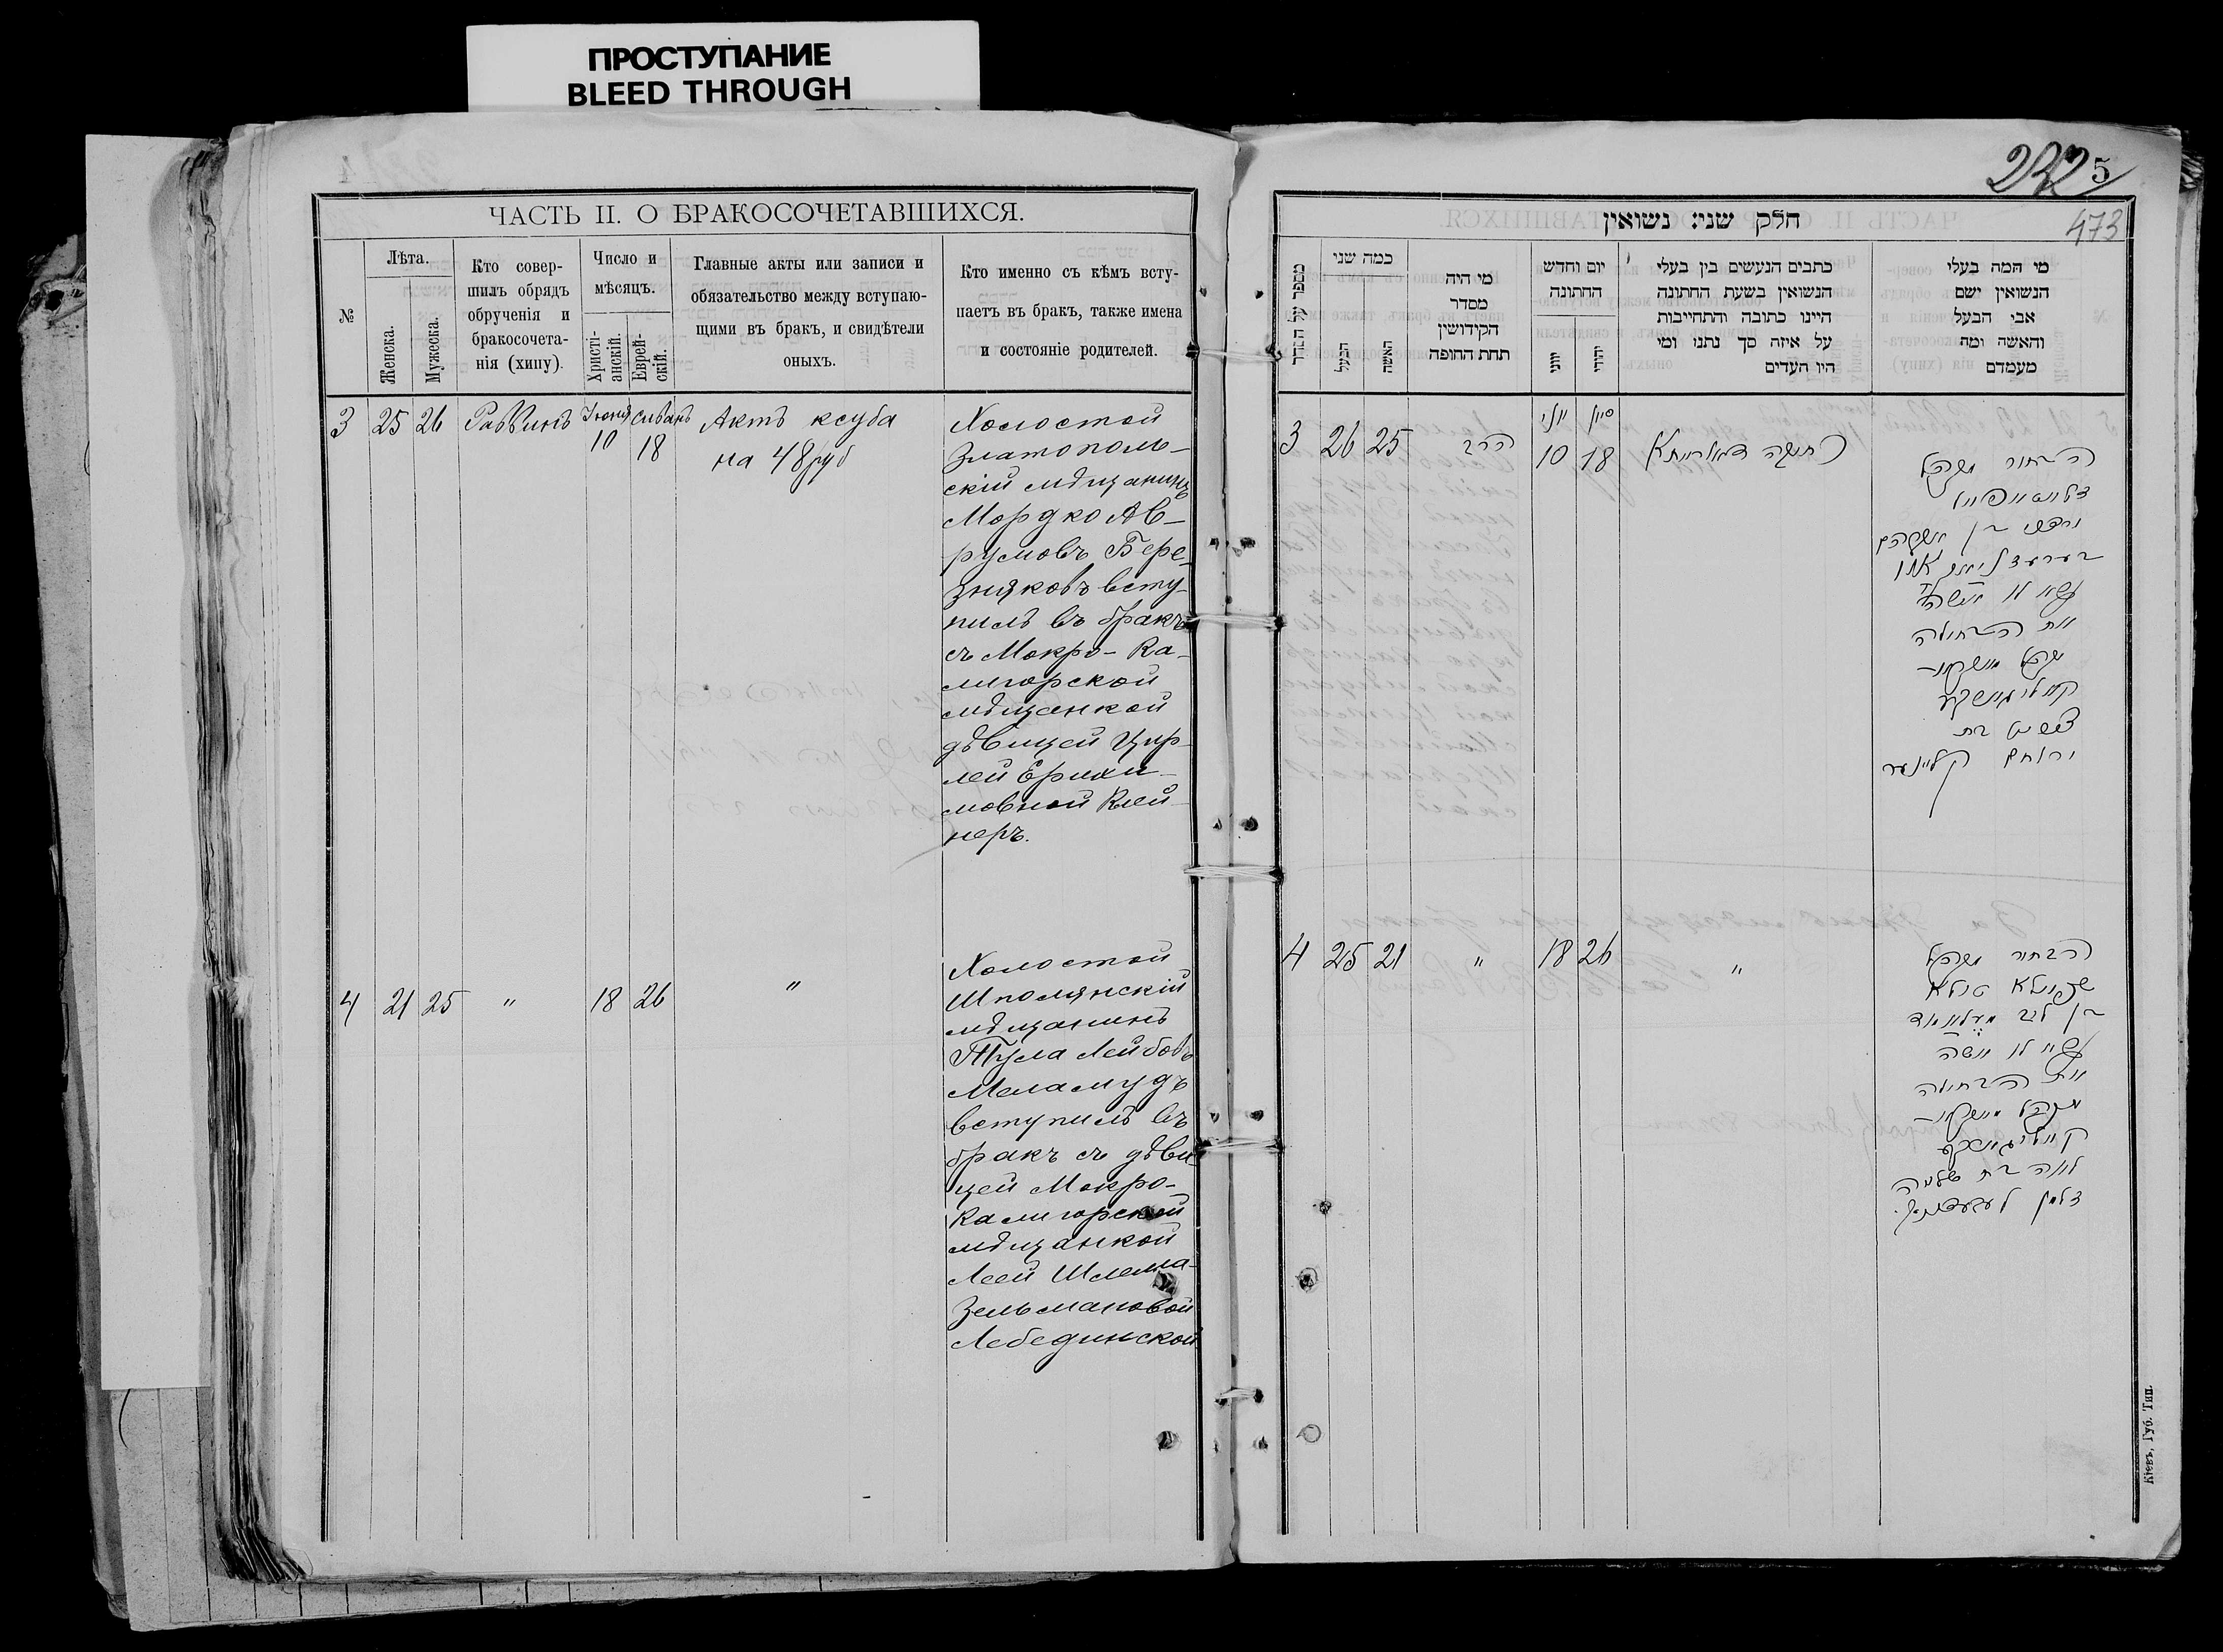 ПРОСТУПАНИЕ
BLEED THROUGH
ЧАСТЬ II. О БРАКОСОЧЕТАВШИХСЯ.
№
Лѣта.
Женска.
Мужеска.
Кто совер-
шилъ обрядъ
обрученія и
бракосочета-
нія (хипу).
Число и
мѣсяцъ.
Христі-
анскій.
Еврей-
скій.
Главные акты или записи и
обязательство между вступаю-
щими въ бракъ, и свидѣтели
оныхъ.
Кто именно съ кѣмъ всту-
паетъ въ бракъ, также имена
и состояніе родителей.
3
25
26
Раввинъ
Іюня
10
Сиванъ
18
Актъ ксуба
на 48 руб
Холостой
Златополь-
скій мѣщанинъ
Мордко Ав-
румовъ Бере-
зняковъ всту-
пилъ въ бракъ
съ Мокро-Ка-
лигорской
мѣщанкой
дѣвицей Цир-
лей Ерихи-
мовной Клей-
неръ.
4
21
25
"
18
26
"
Холостой
Шполянскій
мѣщанинъ
Тула Лейбовъ
Меламудъ
вступилъ въ
бракъ съ дѣви-
цей Мокро-
Калигорской
мѣщанкой
Леей Шлема-
Зельмановой
Лебединской
232
5
473
חלק שני: נשואין
מספר על הסדר
כמה שני
הבעל
האשה
מי היה
מסדר
הקידושין
תחת החופה
יום וחדש
החתונה
יוני
יהודי
כתבים הנעשים בין בעלי
הנשואין בשעת החתונה
היינו כתובה והתחייבות
על איזה סך נתנו ומי
היו העדים
מי המה בעלי
הנשואין ישם
אבי הבעל
והאשה ומה
מעמדם
3
26
25
הרב
יוני
10
סיון
18
הבחור
נשא לו אשה
את הבתולה
בת
ירוחם קליינער
4
25
21
"
18
26
"
הבחור
בן ליב מעלאמוד
נשא לו אשה
את הבתולה
לאה בת שלמה
זלמן
Кіевъ, Губ. Тип.